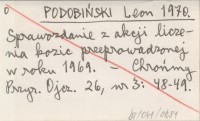 PODOBIŃSKI Leon 1970.
Sprawozdanie z akcji licze-
nia kozic przeprowadzonej
w roku 1969. – Chrońmy
Przyr. Ojcz. 26, nr 3: 48-49.